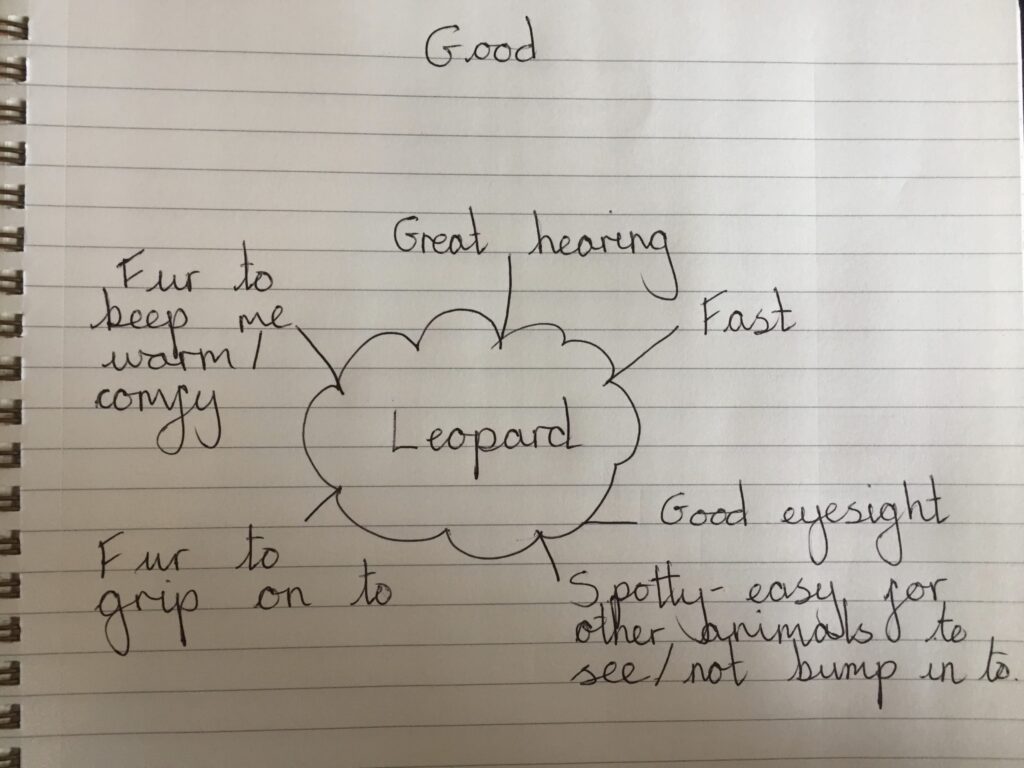 Good
Great hearing
Fur to
keep me
warm/
comfy
Fast
Leopard
Good eyesight
Fur to
grip on to
Spotty- easy for
other animals to
see/not bump in to.